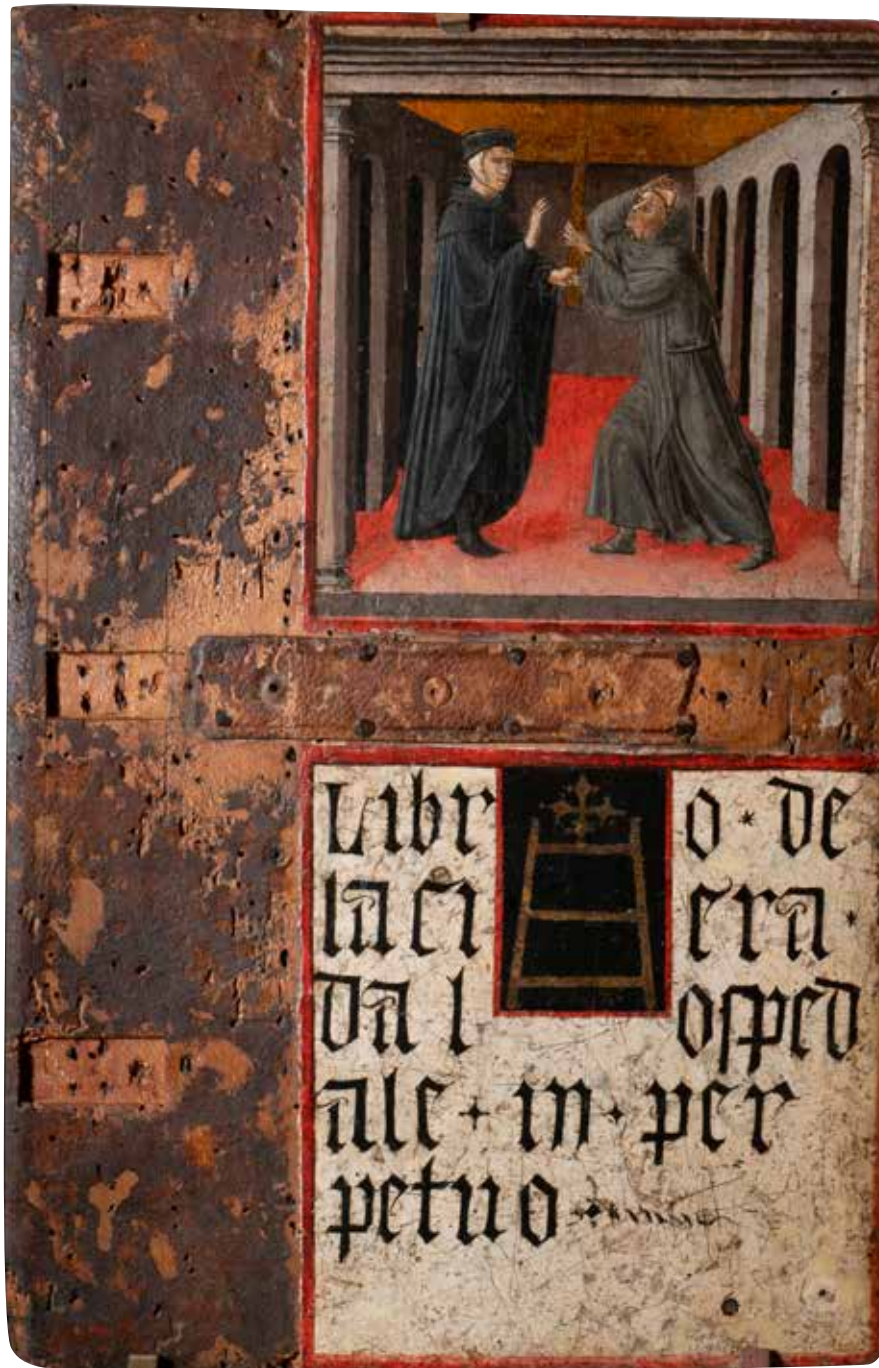 Libro · de
laciera ·
da l oſped
ale + in · per
petuo